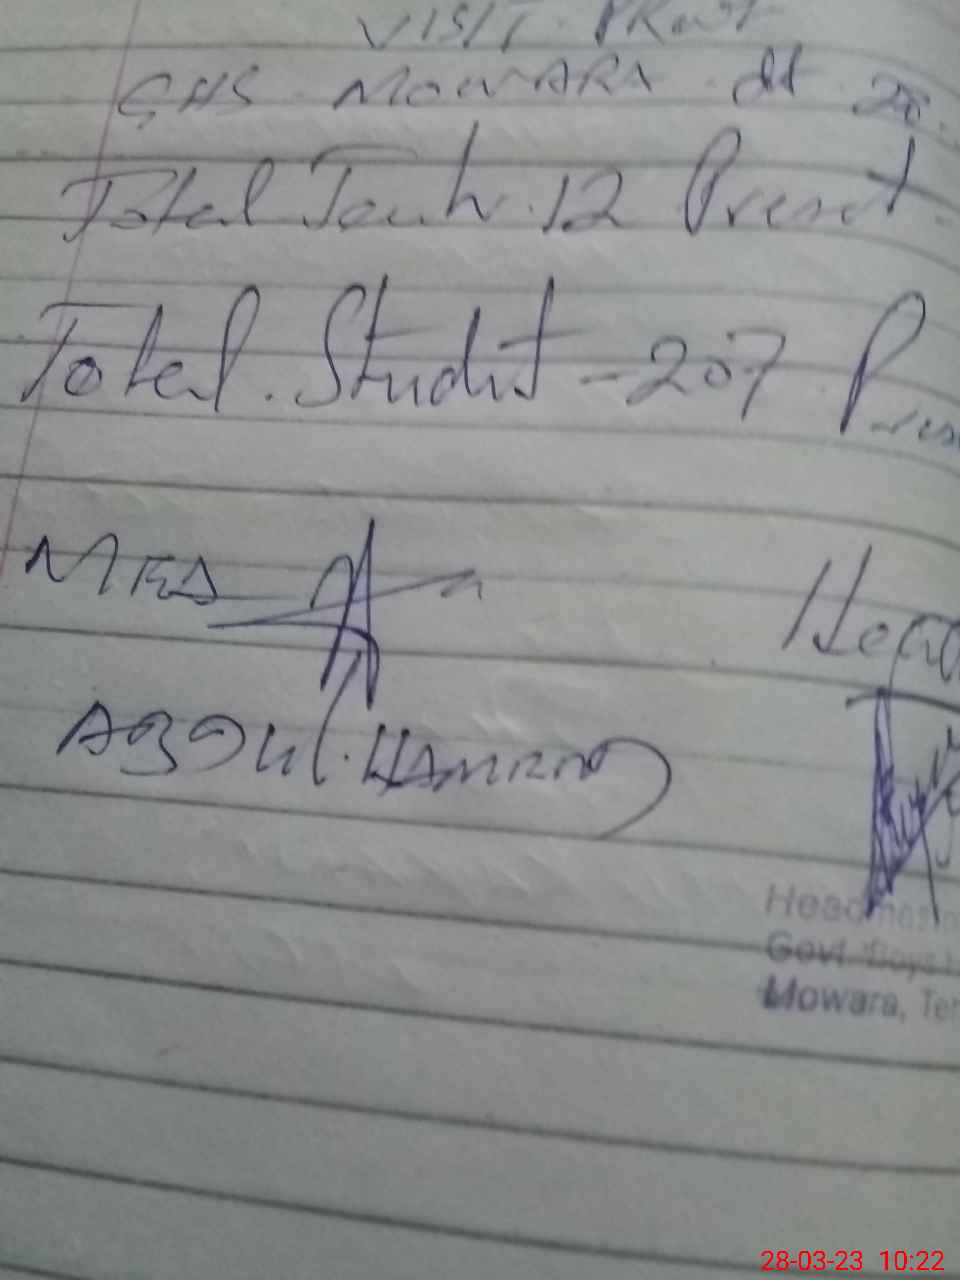 VISIT
GHS MOWARA dt 28.
Total Teach. 12 Present
Total. Studut - 207 Pres
MEA
ABDUL. HAMEED
Head
Headmas
Govt Boys H
Mowara, Teh
28-03-23 10:22